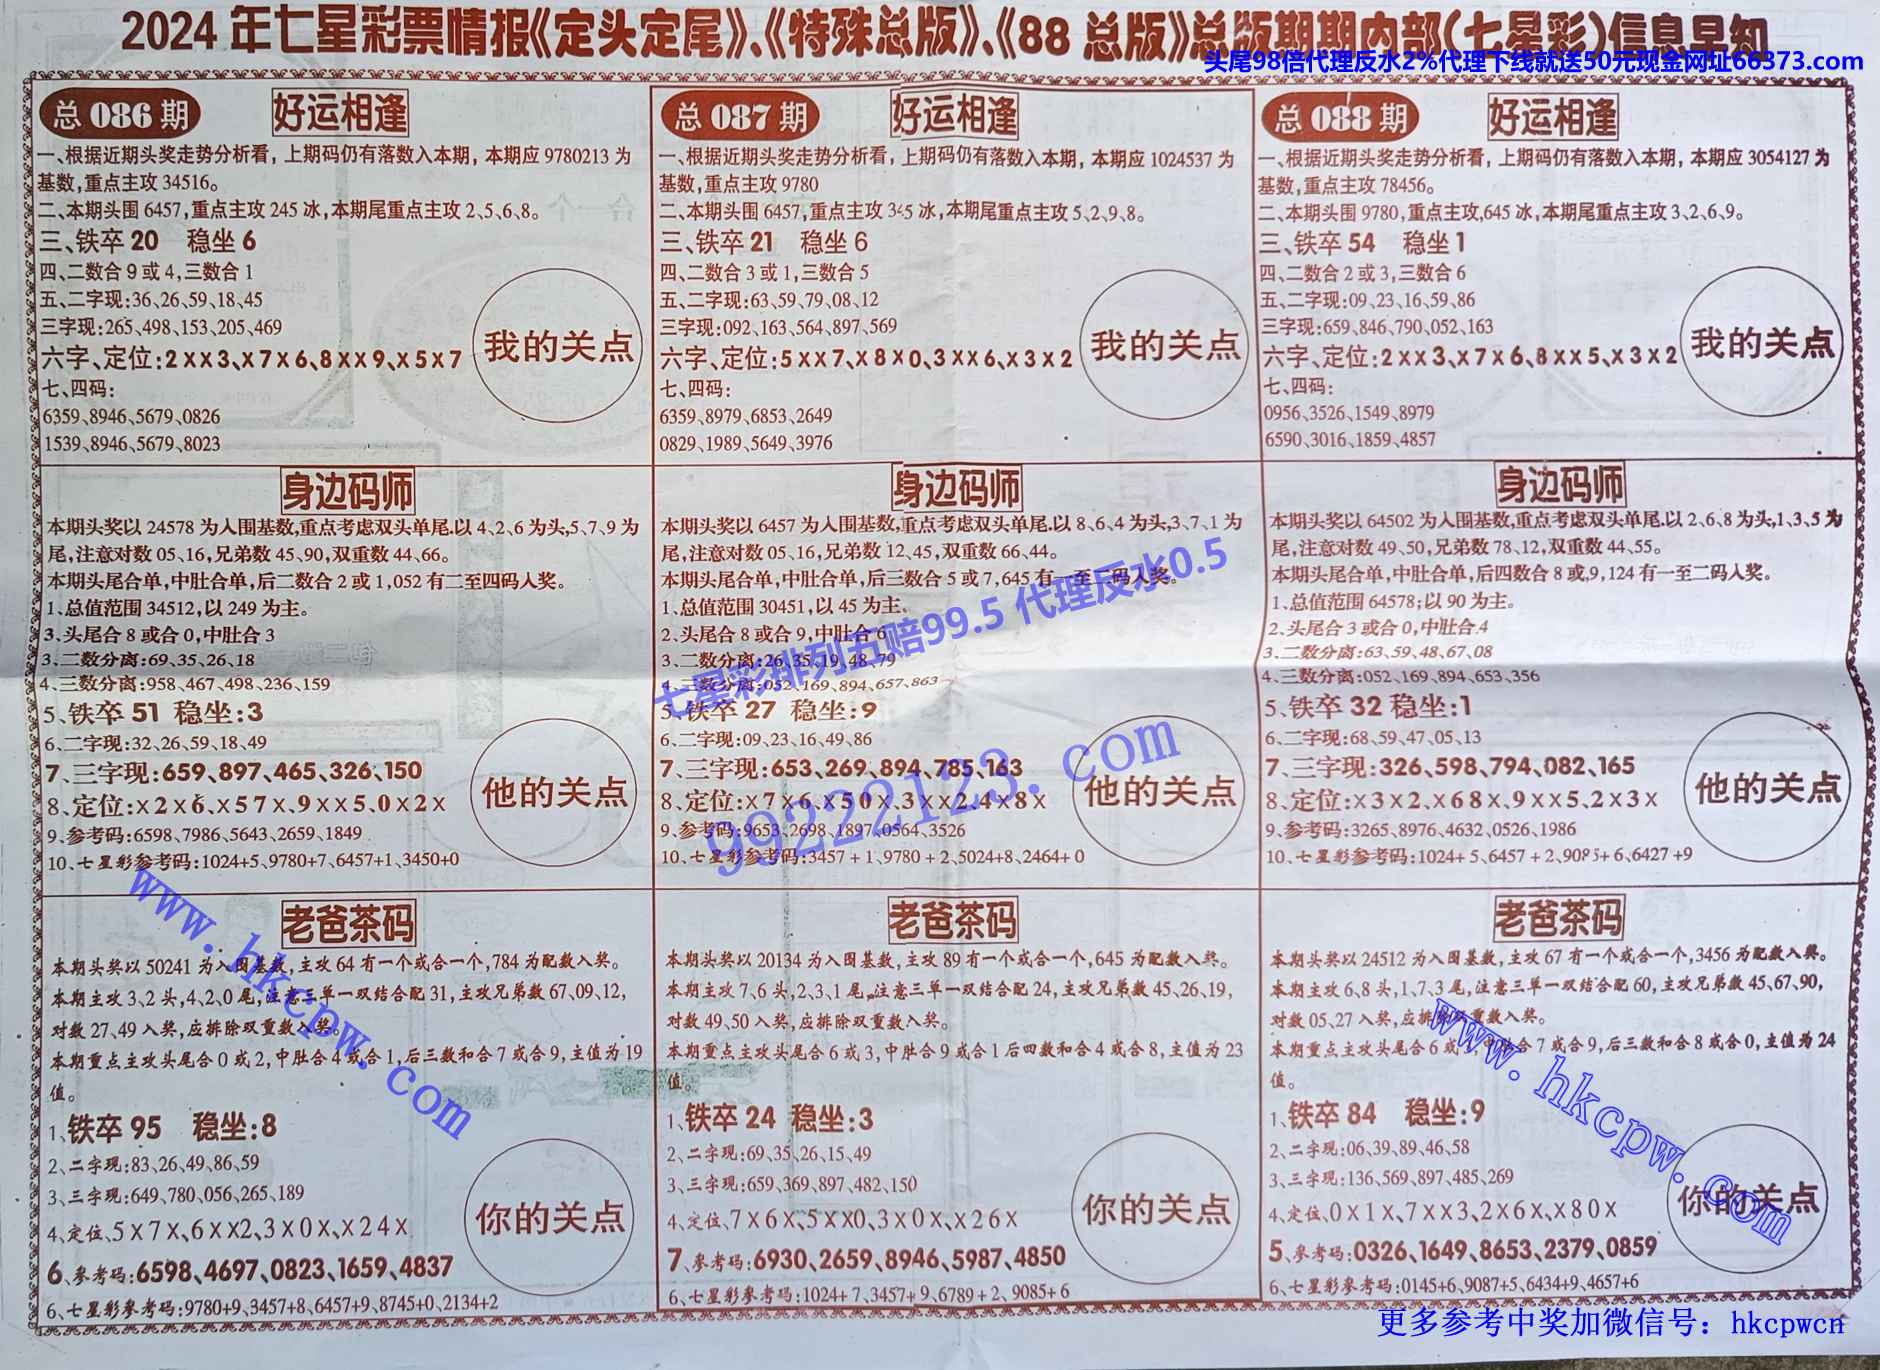 2024年七星彩票情报《定头定尾》、《特殊总版》、《88总版》总版期期内部(七星彩)信息早知
头尾98倍代理反水2%代理下线就送50元现金网址66373.com
总086期 好运相逢
一、根据近期头奖走势分析看,上期码仍有落数入本期,本期应9780213为
基数,重点主攻34516。
二、本期头围6457,重点主攻245冰,本期尾重点主攻2、5、6、8。
三、铁卒20 稳坐6
四、二数合9或4,三数合1
五、二字现:36、26、59、18、45
三字现:265、498、153、205、469
六字、定位:2××3、×7×6、8××9、×5×7
七、四码:
6359、8946、5679、0826
1539、8946、5679、8023
我的关点
总087期 好运相逢
一、根据近期头奖走势分析看,上期码仍有落数入本期,本期应1024537为
基数,重点主攻9780
二、本期头围6457,重点主攻345冰,本期尾重点主攻5、2、9、8。
三、铁卒21 稳坐6
四、二数合3或1,三数合5
五、二字现:63、59、79、08、12
三字现:092、163、564、897、569
六字、定位:5××7、×8×0、3××6、×3×2
七、四码:
6359、8979、6853、2649
0829、1989、5649、3976
我的关点
总088期 好运相逢
一、根据近期头奖走势分析看,上期码仍有落数入本期,本期应3054127为
基数,重点主攻78456。
二、本期头围9780,重点主攻,645冰,本期尾重点主攻3、2、6、9。
三、铁卒54 稳坐1
四、二数合2或3,三数合6
五、二字现:09、23、16、59、86
三字现:659、846、790、052、163
六字、定位:2××3、×7×6、8××5、×3×2
七、四码:
0956、3526、1549、8979
6590、3016、1859、4857
我的关点
身边码师
本期头奖以24578为人围基数,重点考虑双头单尾.以4、2、6为头,5、7、9为
尾,注意对数05、16,兄弟数45、90,双重数44、66。
本期头尾合单,中肚合单,后二数合2或1,052有二至四码人奖。
1、总值范围34512,以249为主。
3、头尾合8或合0,中肚合3
3、二数分离:69、35、26、18
4、三数分离:958、467、498、236、159
5、铁卒51 稳坐:3
6、二字现:32、26、59、18、49
7、三字现:659、897、465、326、150
8、定位:×2×6、×57×、9××5、0×2×
9、参考码:6598、7986、5643、2659、1849
10、七星彩参考码:1024+5、9780+7、6457+1、3450+0
他的关点
身边码师
本期头奖以6457为人围基数,重点考虑双头单尾.以8、6、4为头,3、7、1为
尾,注意对数05、16,兄弟数12、45,双重数66、44。
本期头尾合单,中肚合单,后三数合5或7,645有一至二码人奖。
1、总值范围30451,以45为主、
2、头尾合8或合9,中肚合6
3、二数分离:26、35、19、48、79
4、三数分离:052、169、894、657、863
5、铁卒27 稳坐:9
6、二字现:09、23、16、49、86
7、三字现:653、269、894、785、163
8、定位:×7×6、×50×、3××2、4×8×
9、参考码:9653、2698、1897、0564、3526
10、七星彩参考码:3457+1、9780+2、5024+8、2464+0
他的关点
身边码师
本期头奖以64502为人围基数,重点考虑双头单尾.以2、6、8为头,1、3、5为
尾,注意对数49、50,兄弟数78、12,双重数44、55。
本期头尾合单,中肚合单,后四数合8或,9,124有一至二码入奖。
1、总值范围64578;以90为主。
2、头尾合3或合0,中肚合4
3、二数分离:63、59、48、67、08
4、三数分离:052、169、894、653、356
5、铁卒32 稳坐:1
6、二字现:68、59、47、05、13
7、三字现:326、598、794、082、165
8、定位:×3×2、×68×、9××5、2×3×
9、参考码:3265、8976、4632、0526、1986
10、七星彩参考码:1024+5、6457+2、9085+6、6427+9
他的关点
七星彩排列五赔99.5 代理反水0.5
99222123.com
老爸茶码
本期头奖以50241为入围基数,主攻64有一个或合一个,784为配数入奖。
本期主攻3、2头,4、2、0尾,注意三单一双结合配31,主攻兄弟数67、09、12,
对数27、49入奖,应排除双重数入奖。
本期重点主攻头尾合0或2,中肚合4或合1,后三数和合7或合9,主值为19
值。
1、铁卒95 稳坐:8
2、二字现:83、26、49、86、59
3、三字现:649、780、056、265、189
4、定位、5×7×、6××2、3×0×、×24×
6、参考码:6598、4697、0823、1659、4837
6、七星彩参考码:9780+9、3457+8、6457+9、8745+0、2134+2
你的关点
www.hkcpw.com
老爸茶码
本期头奖以20134为入围基数,主攻89有一个或合一个,645为配数入奖。
本期主攻7、6头,2、3、1尾,注意三单一双结合配24,主攻兄弟数45、26、19,
对数49、50入奖,应排除双重数入奖。
本期重点主攻头尾合6或3,中肚合9或合1后四数和合4或合8,主值为23
值。
1、铁卒24 稳坐:3
2、二字现:69、35、26、15、49
3、三字现:659、369、897、482、150
4、定位、7×6×、5××0、3×0×、×26×
7、参考码:6930、2659、8946、5987、4850
6、七星彩参考码:1024+7、3457+9、6789+2、9085+6
你的关点
老爸茶码
本期头奖以24512为入围基数,主攻67有一个或合一个,3456为配数入奖。
本期主攻6、8头,1、7、3尾,注意三单一双结合配60,主攻兄弟数45、67、90,
对数05、27入奖,应排除双重数入奖。
本期重点主攻头尾合6或 中肚合7或合9,后三数和合8或合0,主值为24
值。
1、铁卒84 稳坐:9
2、二字现:06、39、89、46、58
3、三字现:136、569、897、485、269
4、定位、0×1×、7××3、2×6×、×80×
5、参考码:0326、1649、8653、2379、0859
6、七星彩参考码:0145+6、9087+5、6434+9、4657+6
你的关点
www.hkcpw.com
更多参考中奖加微信号:hkcpwcn